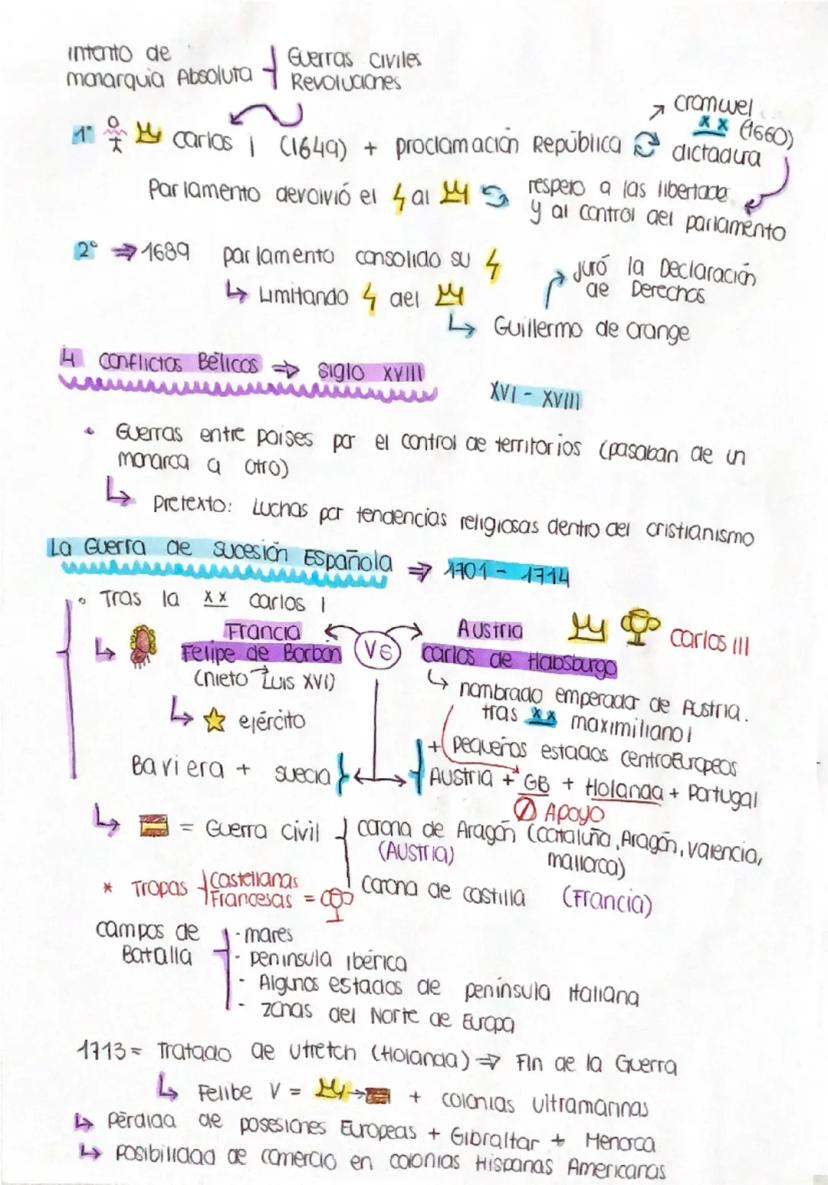 intento de
monarquia Absoluta
Guerras Civiles
Revoluciones
1º carlos I (1649) + proclamación República
cromwel
x x (1660)
dictadura
Parlamento devolvió el al
respeto a las libertade
y al control del parlamento
2º ⇒ 1689 parlamento consolido su
↳ Limitando del
juró la Declaración
de Derechos
↳ Guillermo de orange
4 conflictos Bélicos ⇒ siglo XVIII
XVI - XVIII
• Guerras entre paises por el control de territorios (pasaban de un
monarca a otro)
↳ Pretexto: Luchas por tendencias religiosas dentro del cristianismo
La Guerra de sucesión Española ⇒ 1701 - 1714
• Tras la x x carlos I
Francia
Felipe de Borbon
(nieto Luis XVI)
VS
Austria
carlos de Habsburgo
carlos III
↳ nombrado emperador de Austria.
tras x x maximiliano I
↳ ejército
Baviera + suecia
+ Pequeños estados centroEuropeos
Austria + GB + Holanda + Portugal
Apoyo
↳ = Guerra civil
corona de Aragón (cataluña, Aragón, valencia,
mallorca)
(AUSTRIA)
corona de castilla (Francia)
* Tropas
Castellanas
Francesas =
campos de
Batalla
- mares
- península ibérica
- Algunos estados de península italiana
- zonas del Norte de Europa
1713 = Tratado de Utretch (Holanda) ⇒ Fin de la Guerra
↳ Felibe V = → + colonias ultramarinas
↳ Pérdida de posesiones Europeas + Gibraltar + Menorca
↳ Posibilidad de comercio en colonias Hispanas Americanas